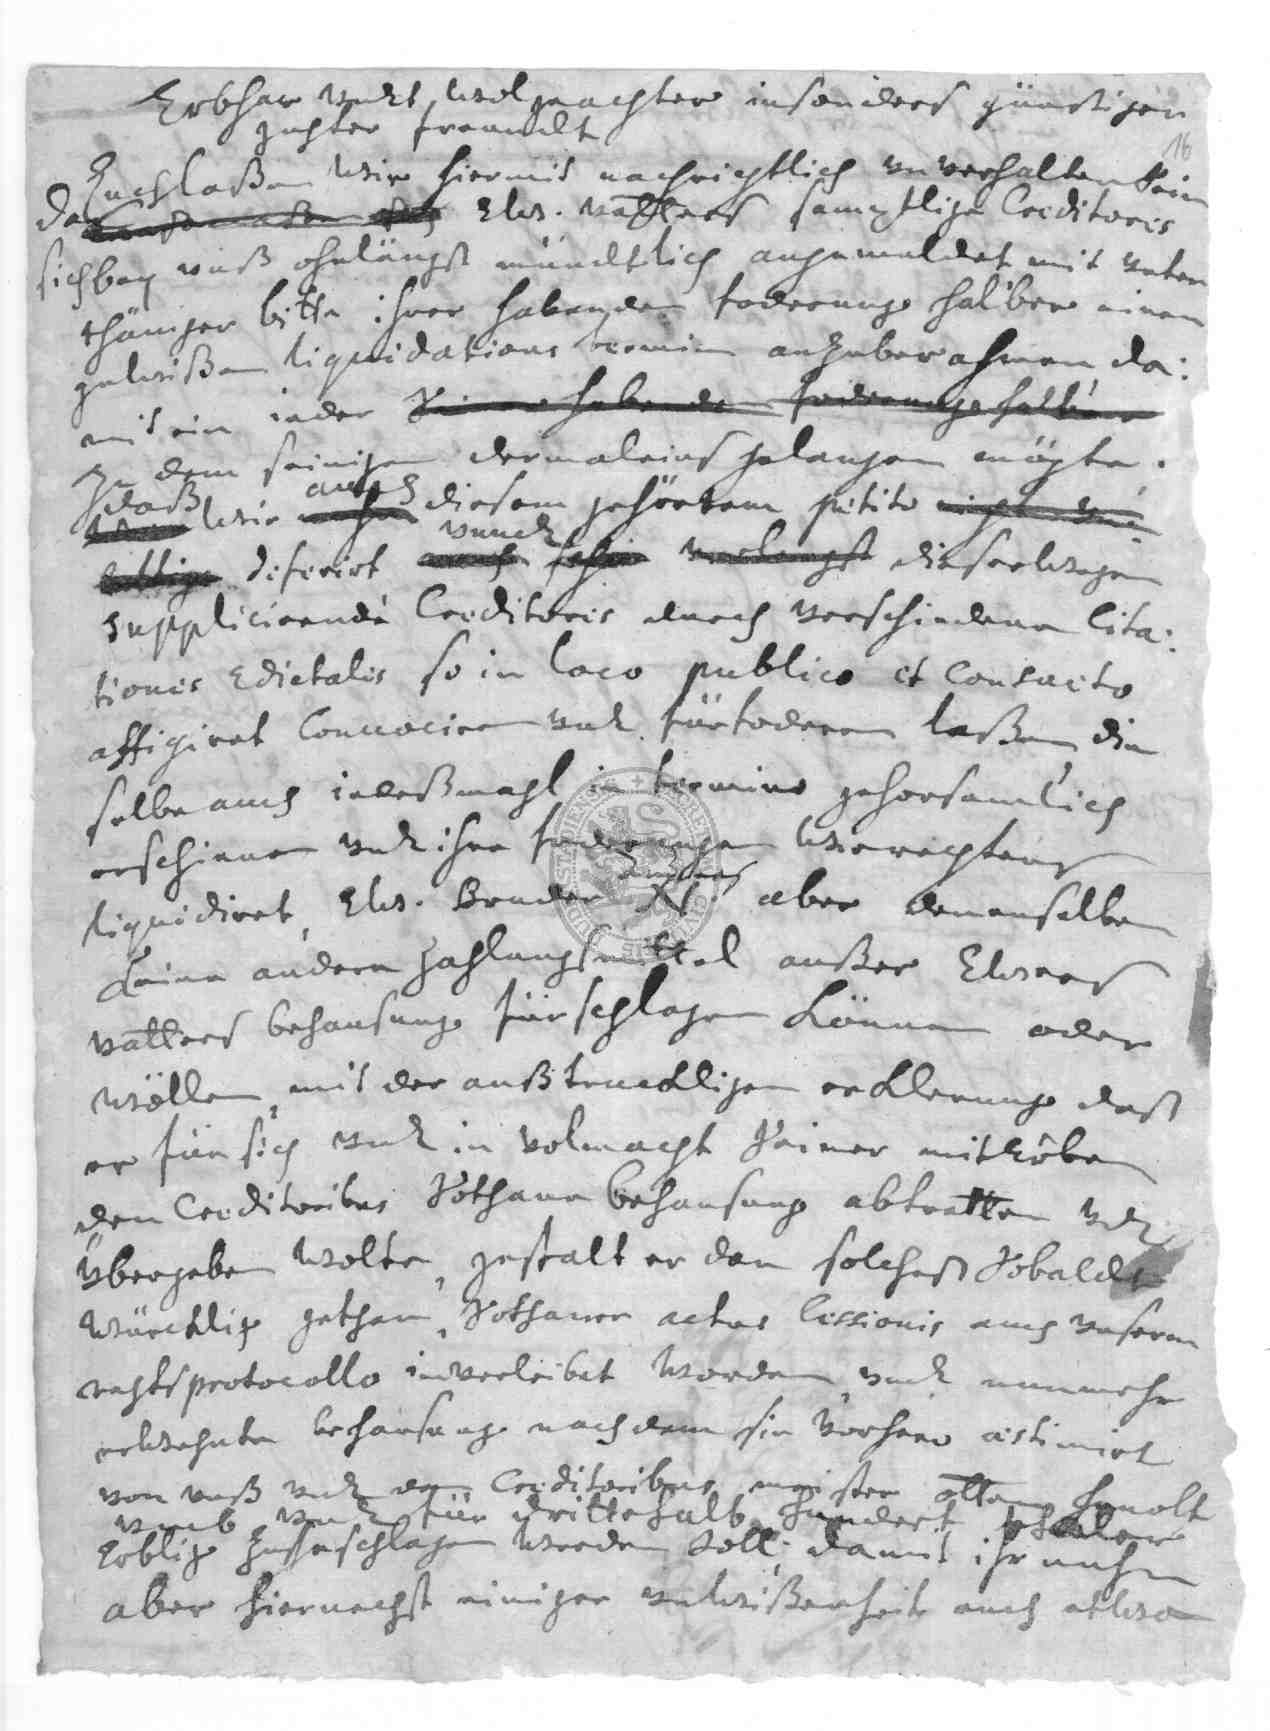 Erbhar undt wolgeachter insonders günstiger
guhter freundt
16
Euch laßen wir hiermit nachrichtlich unverhalten sein
daß Ewr. Vatters sämptlige Creditores
sich bey unß ohnlängst mündtlich angemeldet mit unter
thäniger bitte ihrer habenden foderunge halber einen
gewißen liquidations termin anzuberahmen da:
mit ein ieder seiner habenden foderunge halber
zu dem seinigen dermaleins gelangen mögte.
daß wir auch diesem gehörtem petito
deferirt unndt dieserwegen
supplicirende Creditores durch verschiedene Cita:
tiones Edictales so in loco publico et consueto
affigiret Convociren und fürfoderen laßen, die
selbe auch iedeßmahl in termino gehorsamlich
erschienen und ihre foderungen wie rechtens
liquidiret, Ewr. Bruder aber denenselben
keine andere zahlungsmittel außer Ewres
vatters behausunge fürschlagen können oder
wöllen, mit der außtruckligen erklerunge daß
er für sich und in volmacht seiner miterben
den Creditoribus sothane behausung abtretten und
übergeben wolte, gestalt er dan solcheß sobaldt
würcklig gethan, sothaner actus Cessionis auch unserm
rechtsprotocollo inverleibet worden, und nunmehr
erwehnte behausunge nach dem sie vorhero æstimirt
von unß und den Creditoribus meister otten
umb und für drittehalb hundert thaler
Erblig zugeschlagen werden soll; damit ihr nuhn
aber hiernechst einiger unwißenheit euch etwa